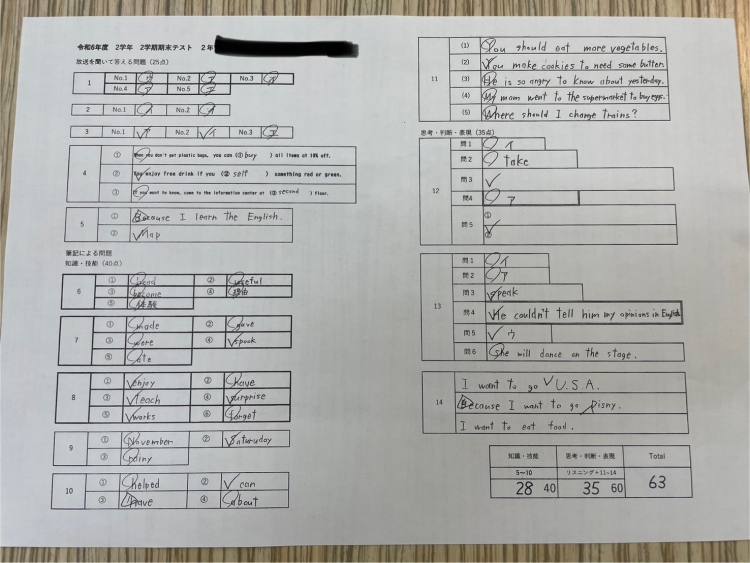 令和6年度 2学年 2学期期末テスト 2年
放送を聞いて答える問題(25点)
1 No.1 No.2 No.3
No.4 No.5
2 No.1 No.2
3 No.1 ア No.2 イ No.3 エ
4 ① When you don't get plastic bags, you can (① buy ) all items at 10% off.
② You enjoy free drink if you (② self ) something red or green.
③ If you want to know, come to the information center at (③ second ) floor.
5 ① Because I learn the English.
② Map
筆記による問題
知識・技能(40点)
6 ① ② useful
③ become ④ 理由
⑤ 体験
7 ① made ② gave
③ were ④ spook
⑤ ate
8 ① enjoy ② have
③ teach ④ surprise
⑤ works ⑥ forget
9 ① November ② Saturuday
③ rainy
10 ① helped ② can
③ have ④ about
11 (1) You should eat more vegetables.
(2) You make cookies to need some butter.
(3) He is so angry to know about yesterday.
(4) My mom went to the supermarket to buy eggs.
(5) Where should I change trains?
思考・判断・表現(35点)
12 問1 イ
問2 take
問3
問4 ア
問5 ①
②
13 問1 イ
問2 ア
問3 speak
問4 He couldn't tell him my opinions in English.
問5 ウ
問6 She will dance on the stage.
14 I want to go U.S.A.
Because I want to go Disny.
I want to eat food.
知識・技能 思考・判断・表現 Total
5～10 リスニング+11~14
28 40 35 60 63